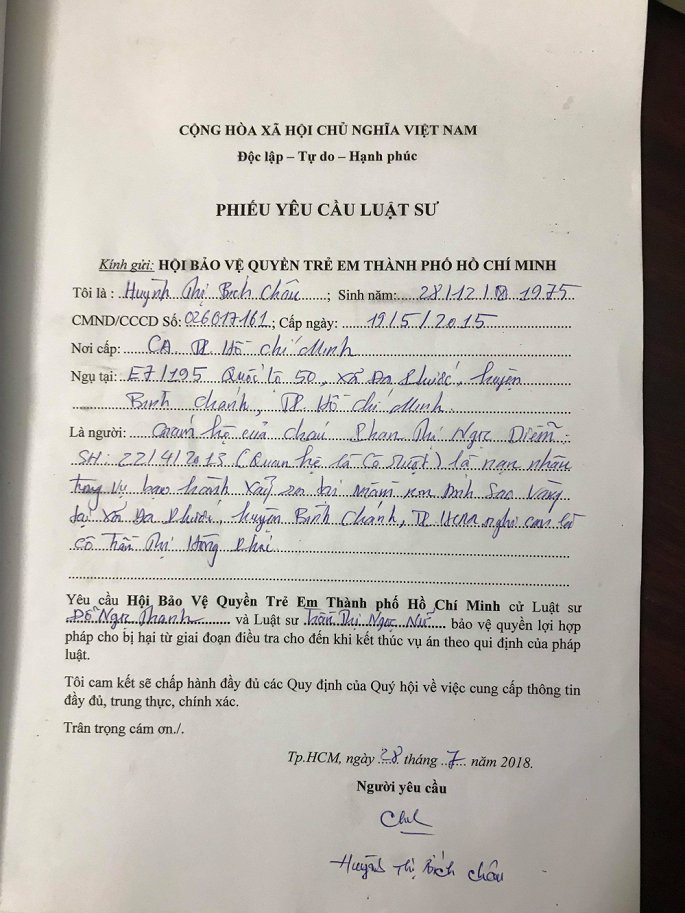 CỘNG HÒA XÃ HỘI CHỦ NGHĨA VIỆT NAM
Độc lập – Tự do – Hạnh phúc
PHIẾU YÊU CẦU LUẬT SƯ
Kính gửi: HỘI BẢO VỆ QUYỀN TRẺ EM THÀNH PHỐ HỒ CHÍ MINH
Tôi là : Huỳnh Thị Bích Châu ; Sinh năm: 28/12/ 1975
CMND/CCCD Số: 026017161 ; Cấp ngày: 19/5/2015
Nơi cấp: CA TP Hồ Chí Minh
Ngụ tại: E7/195 Quốc lộ 50, xã Đa Phước, huyện
Bình Chánh, TP. Hồ Chí Minh.
Là người: Giám hộ của cháu Phan Thị Ngọc Diễm
SH: 22/4/2013 (Quan hệ là Cô ruột) là nạn nhân
trong vụ bạo hành xảy ra tại mầm non Ánh Sao Vàng
tại xã Đa Phước, huyện Bình Chánh, TP HCM nghi can là
cô Trần Thị Hồng
Yêu cầu Hội Bảo Vệ Quyền Trẻ Em Thành phố Hồ Chí Minh cử Luật sư
Đỗ Ngọc Thanh và Luật sư Trần Thị Ngọc Nữ bảo vệ quyền lợi hợp
pháp cho bị hại từ giai đoạn điều tra cho đến khi kết thúc vụ án theo qui định của pháp
luật.
Tôi cam kết sẽ chấp hành đầy đủ các Quy định của Quý hội về việc cung cấp thông tin
đầy đủ, trung thực, chính xác.
Trân trọng cám ơn./.
Tp.HCM, ngày 28 tháng 7 năm 2018.
Người yêu cầu
Huỳnh Thị Bích Châu